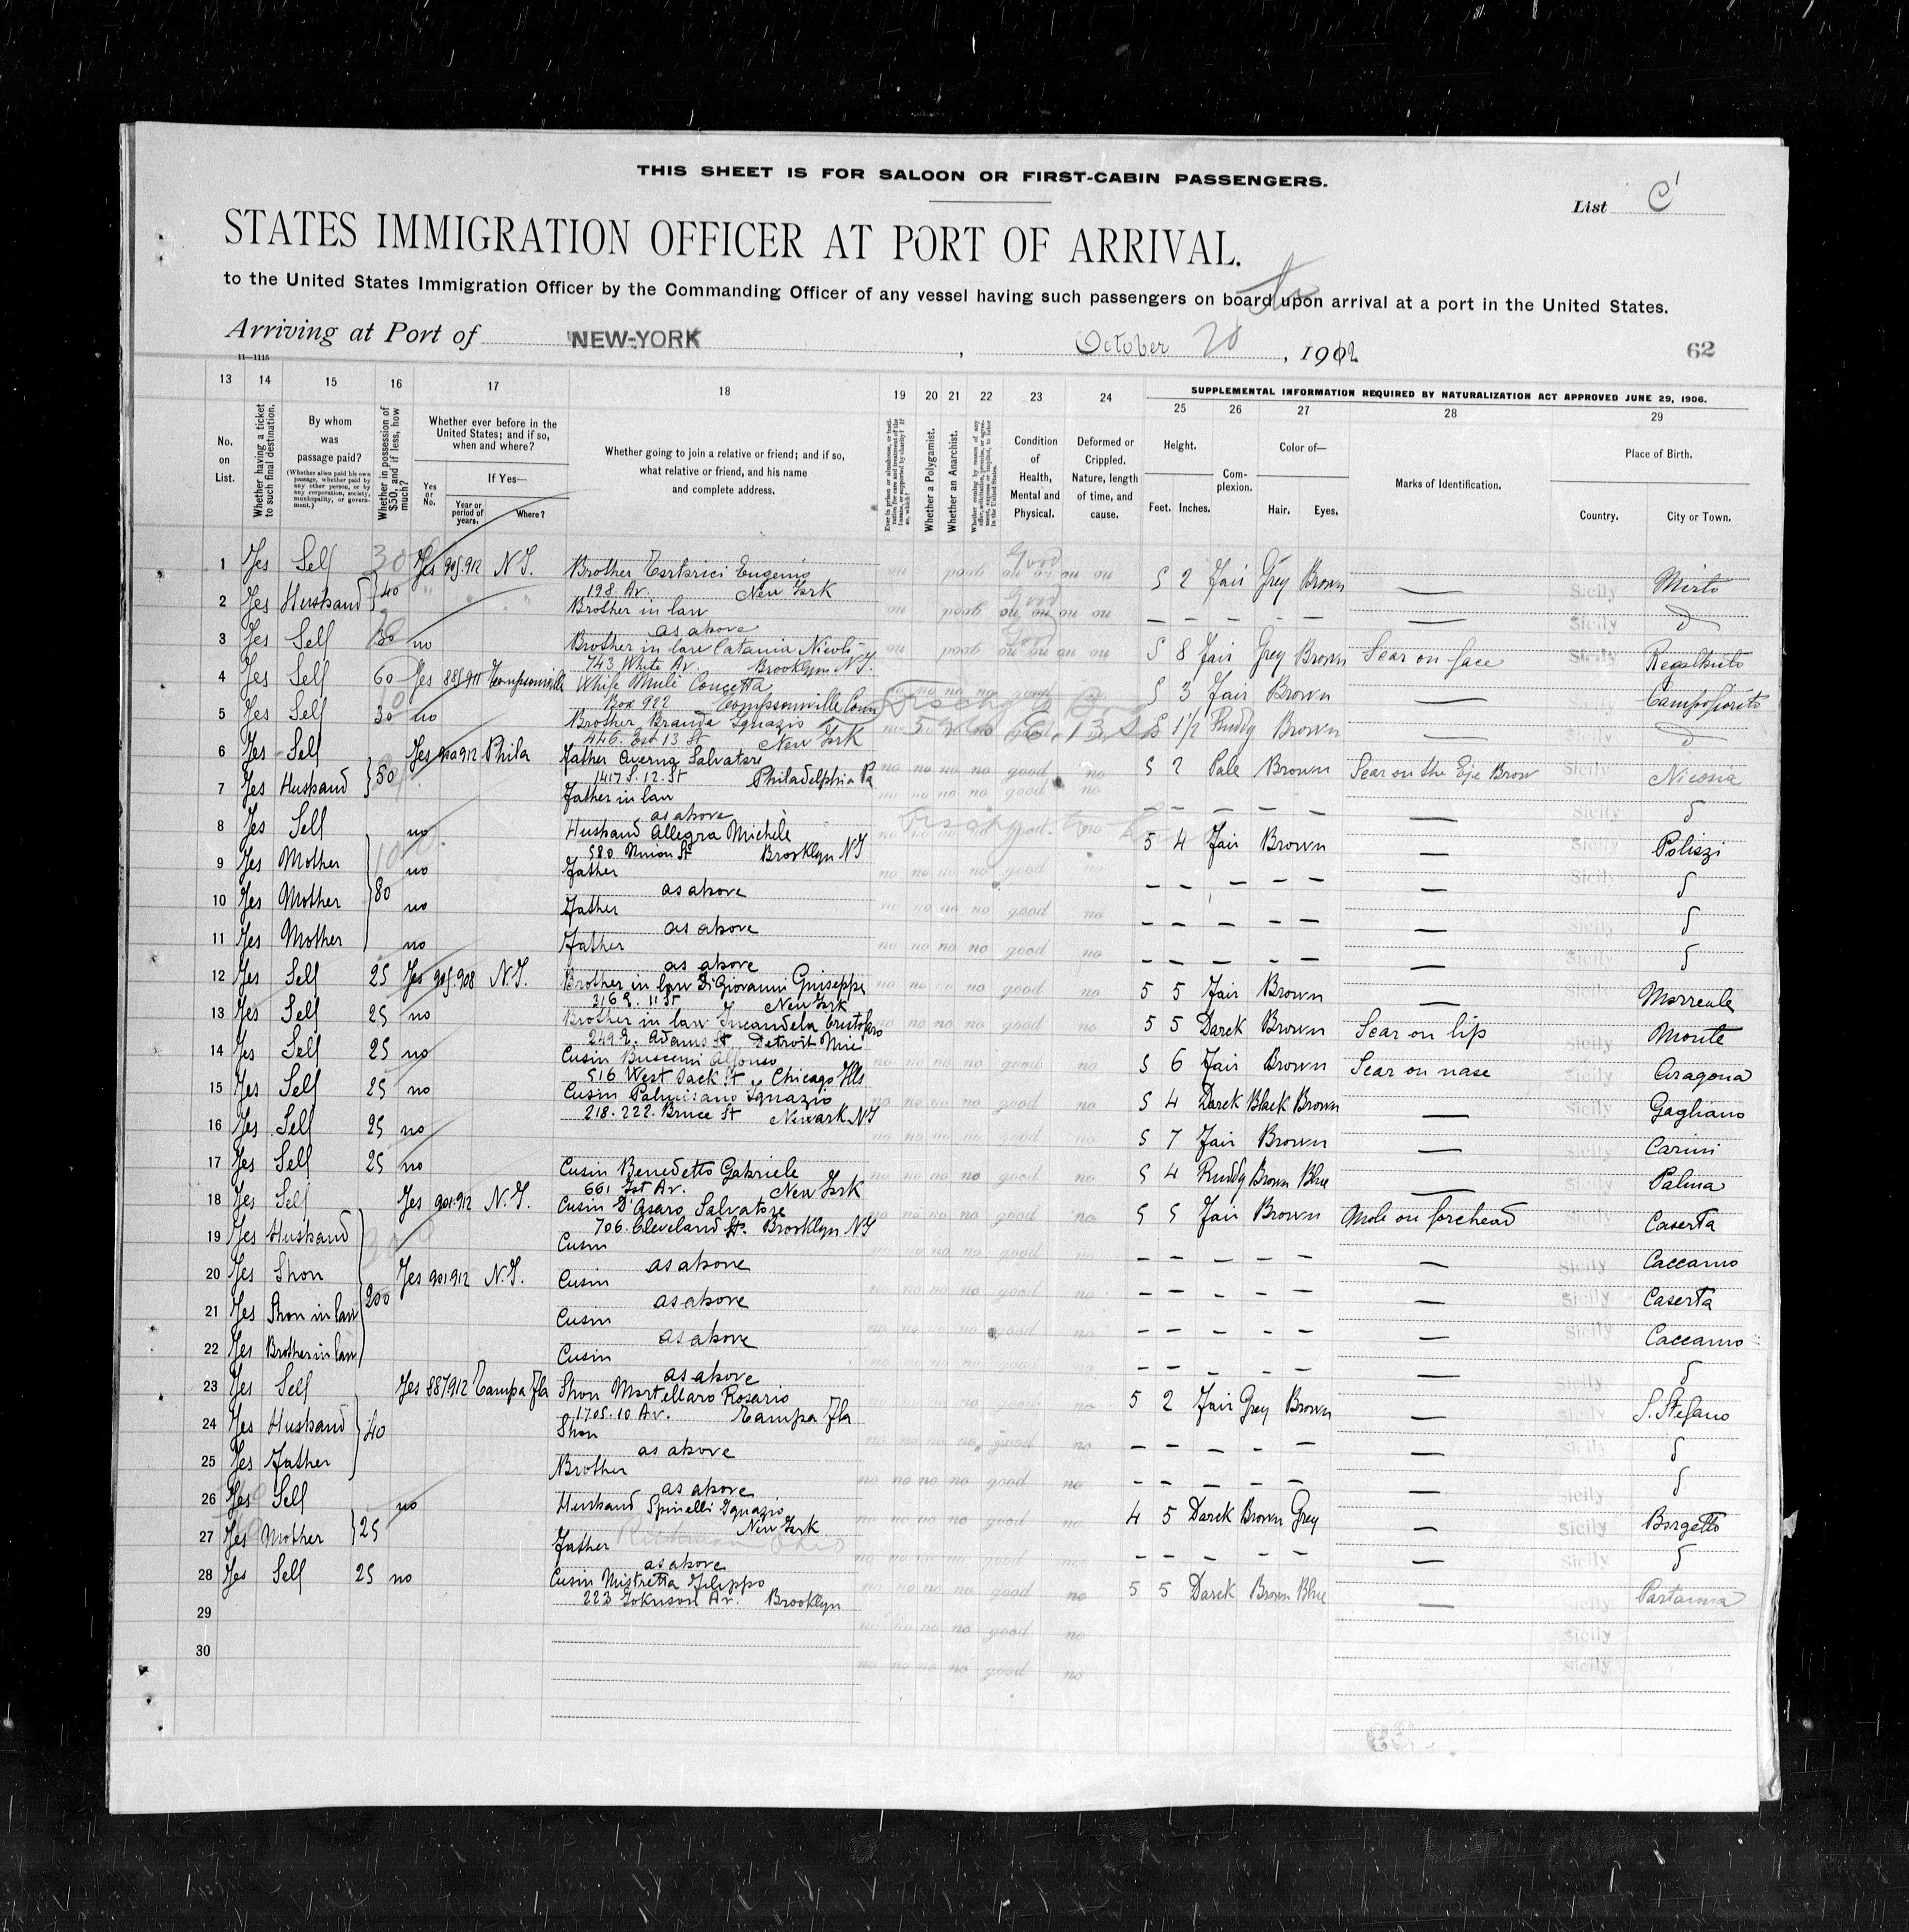 THIS SHEET IS FOR SALOON OR FIRST-CABIN PASSENGERS.
List C'
STATES IMMIGRATION OFFICER AT PORT OF ARRIVAL.
to the United States Immigration Officer by the Commanding Officer of any vessel having such passengers on board upon arrival at a port in the United States.
Arriving at Port of NEW-YORK, October 20, 1912
62
11—1115
13 14 15 16 17 18 19 20 21 22 23 24 SUPPLEMENTAL INFORMATION REQUIRED BY NATURALIZATION ACT APPROVED JUNE 29, 1906.
25 26 27 28 29
No. on List.
Whether having a ticket to such final destination.
By whom was passage paid?
(Whether alien paid his own passage, whether paid by any other person, or by any corporation, society, municipality, or government.)
Whether in possession of $50, and if less, how much?
Whether ever before in the United States; and if so, when and where?
Yes or No.
If Yes—
Year or period of years.
Where?
Whether going to join a relative or friend; and if so, what relative or friend, and his name and complete address.
Whether a Polygamist.
Whether an Anarchist.
Condition of Health, Mental and Physical.
Deformed or Crippled. Nature, length of time, and cause.
Height.
Feet. Inches.
Complexion.
Color of—
Hair. Eyes.
Marks of Identification.
Place of Birth.
Country. City or Town.
1 Yes Self 30 Yes 905.912 N.Y. Brother Eugenio Good 5 2 Fair Grey Brown — Sicily Mirto
198 Av. New York
2 Yes Husband 40 Brother in law Good — — — — — — Sicily
as above
3 Yes Self 30 no Brother in law Catania Good 5 8 Fair Grey Brown Scar on face Sicily Regalbuto
743 White Av. Brooklyn N.Y.
4 Yes Self 60 Yes Whife Muli Concetta no no no no good 5 3 Fair Brown — Campofiorito
Box 922 Conn
5 Yes Self 30 no Brother Branda Ignazio 5 1 1/2 Ruddy Brown — Sicily
446. Est 13 St New York
6 Yes Self Yes 912 Phila Father Averna Salvatore no no no no good no 5 2 Pale Brown Scar on the Eye Brow Sicily Nicosia
1417 S. 12. St Philadelphia Pa
7 Yes Husband 50 Father in law no no no no good no — — — — — — Sicily
as above
8 Yes Self no Husband Allegra Michele good no 5 4 Fair Brown — Sicily Polizzi
580 Union St Brooklyn NY
9 Yes Mother no Father no no no no good no — — — — — — Sicily
as above
10 Yes Mother 80 no Father no no no no good no — — — — — — Sicily
as above
11 Yes Mother no Father no no no no good no — — — — — — Sicily
as above
12 Yes Self 25 Yes 905.908 N.Y. Brother in law Di Giovanni Guiseppe no no no no good no 5 5 Fair Brown — Sicily
316 E. 11 St New York
13 Yes Self 25 no Brother in law Incandela no no no no good no 5 5 Darck Brown Scar on lip Sicily Monte
249 E. Adams St Detroit
14 Yes Self 25 no Cusin Buscemi Alfonso no no no no good no 5 6 Fair Brown Scar on nase Sicily Aragona
516 West St Chicago Ills
15 Yes Self 25 no Cusin Palmisano Ignazio no no no no good no 5 4 Darck Black Brown — Sicily Gagliano
218-222. Bruce St Newark NJ
16 Yes Self 25 no no no no no good no 5 7 Fair Brown — Sicily Carini
17 Yes Self 25 no Cusin Benedetto Gabriele no no no no good no 5 4 Ruddy Brown Blue — Sicily Palma
661 1st Av. New York
18 Yes Self Yes 901.912 N.Y. Cusin D'Asaro Salvatore no no no no good no 5 5 Fair Brown Mole on forehead Sicily Caserta
706. Cleveland St. Brooklyn NY
19 Yes Husband Cusin no no no no good — — — — — — Sicily Caccamo
as above
20 Yes Shon Yes 901 912 N.Y. Cusin no no no no good no — — — — — — Sicily Caserta
as above
21 Yes Shon in law 200 Cusin no no no good no — — — — — — Sicily Caccamo
as above
22 Yes Brother in law Cusin no no no no good — — — — — Sicily
as above
23 Yes Self Yes 887 912 Tampa Fla Shon Martellaro Rosario no no no no good no 5 2 Fair Grey Brown — Sicily S. Stefano
1705. 10 Av. Tampa Fla
24 Yes Husband 40 Shon no no no no good no — — — — — — Sicily
as above
25 Yes Father Brother no no no no good no — — — — — — Sicily
as above
26 Yes Self no Husband Spinelli Ignazio no no no no good no 4 5 Darck Brown Grey — Sicily Borgetto
New York
27 Yes Mother 25 Father no no no no good — — — — — — Sicily
as above
28 Yes Self 25 no Cusin Mistretta Filippo no no no no good no 5 5 Darck Brown Blue — Sicily Partanna
223 Av. Brooklyn
29 no no no no good no Sicily
30 no no no no good no Sicily